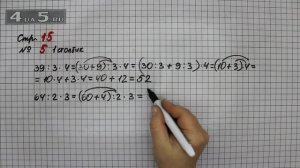 4ↄ5.RU
Стр. 15
№ 5 1 столбик
39 : 3 · 4 = (30 + 9) : 3 · 4 = (30 : 3 + 9 : 3) · 4 = (10 + 3) · 4 =
= 10 · 4 + 3 · 4 = 40 + 12 = 52
64 : 2 · 3 = (60 + 4) : 2 · 3 =